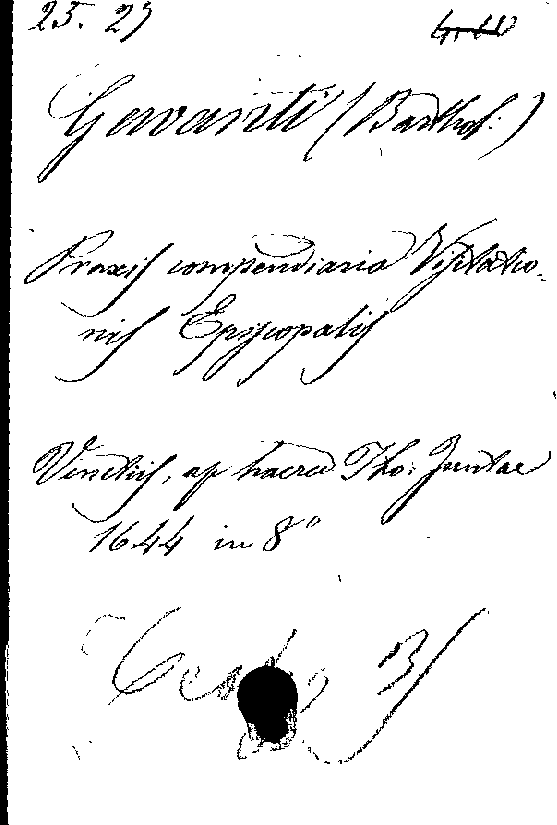 25. 27
Gavanti (Barthol:)
Praxis compendiaria Visitatio-
nis Episcopalis
Venetiis, ap haered Tho: Juntae
1644 in 8°